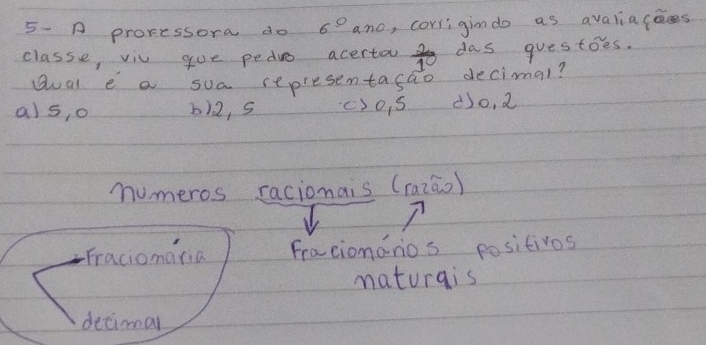 5- A professora do 6º ano, corrigindo as avaliações
classe, viu que pedro acertou 2/10 das questões.
Qual é a sua representação decimal?
a) 5,0 b) 2,5 c) 0,5 d) 0,2
numeros racionais (razão)
Fracionária
Fracionários positivos
naturais
decimal